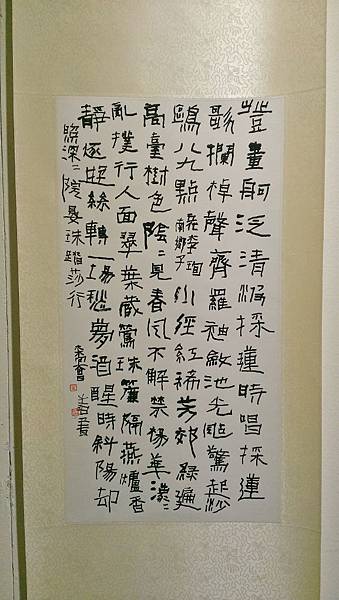 登畫舸泛清波採蓮時唱採蓮
歌攔棹聲齊羅袖斂池光颭驚起沙
鷗八九點李珣南鄉子小徑紅稀芳郊綠遍
高臺樹色陰〻見春風不解禁楊華濛〻
亂撲行人面翠葉藏鶯珠簾隔燕爐香
靜逐遊絲轉一場愁夢酒醒時斜陽却
照深〻院晏珠踏莎行